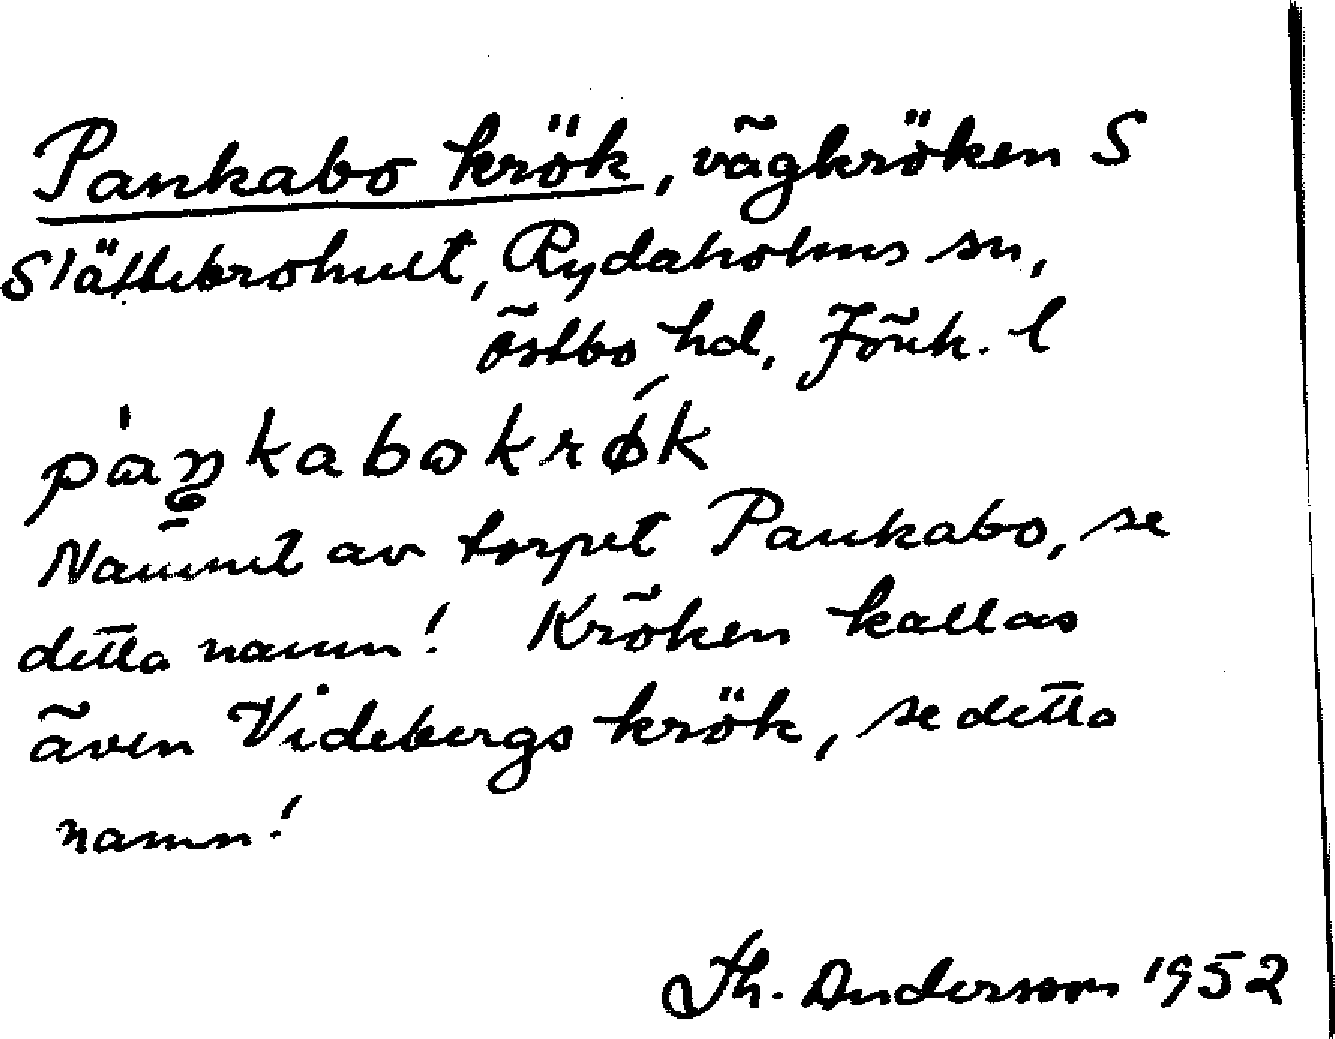 Pankabo krök, vägkröken S
Slättebrohult, Rydaholms sn,
Östbo hd, Jönk. l
pàŋkabokrǿk
Namnet av torpet Pankabo, se
detta namn! Kröken kallas
även Videbergs krök, se detta
namn!
Th. Andersson 1952